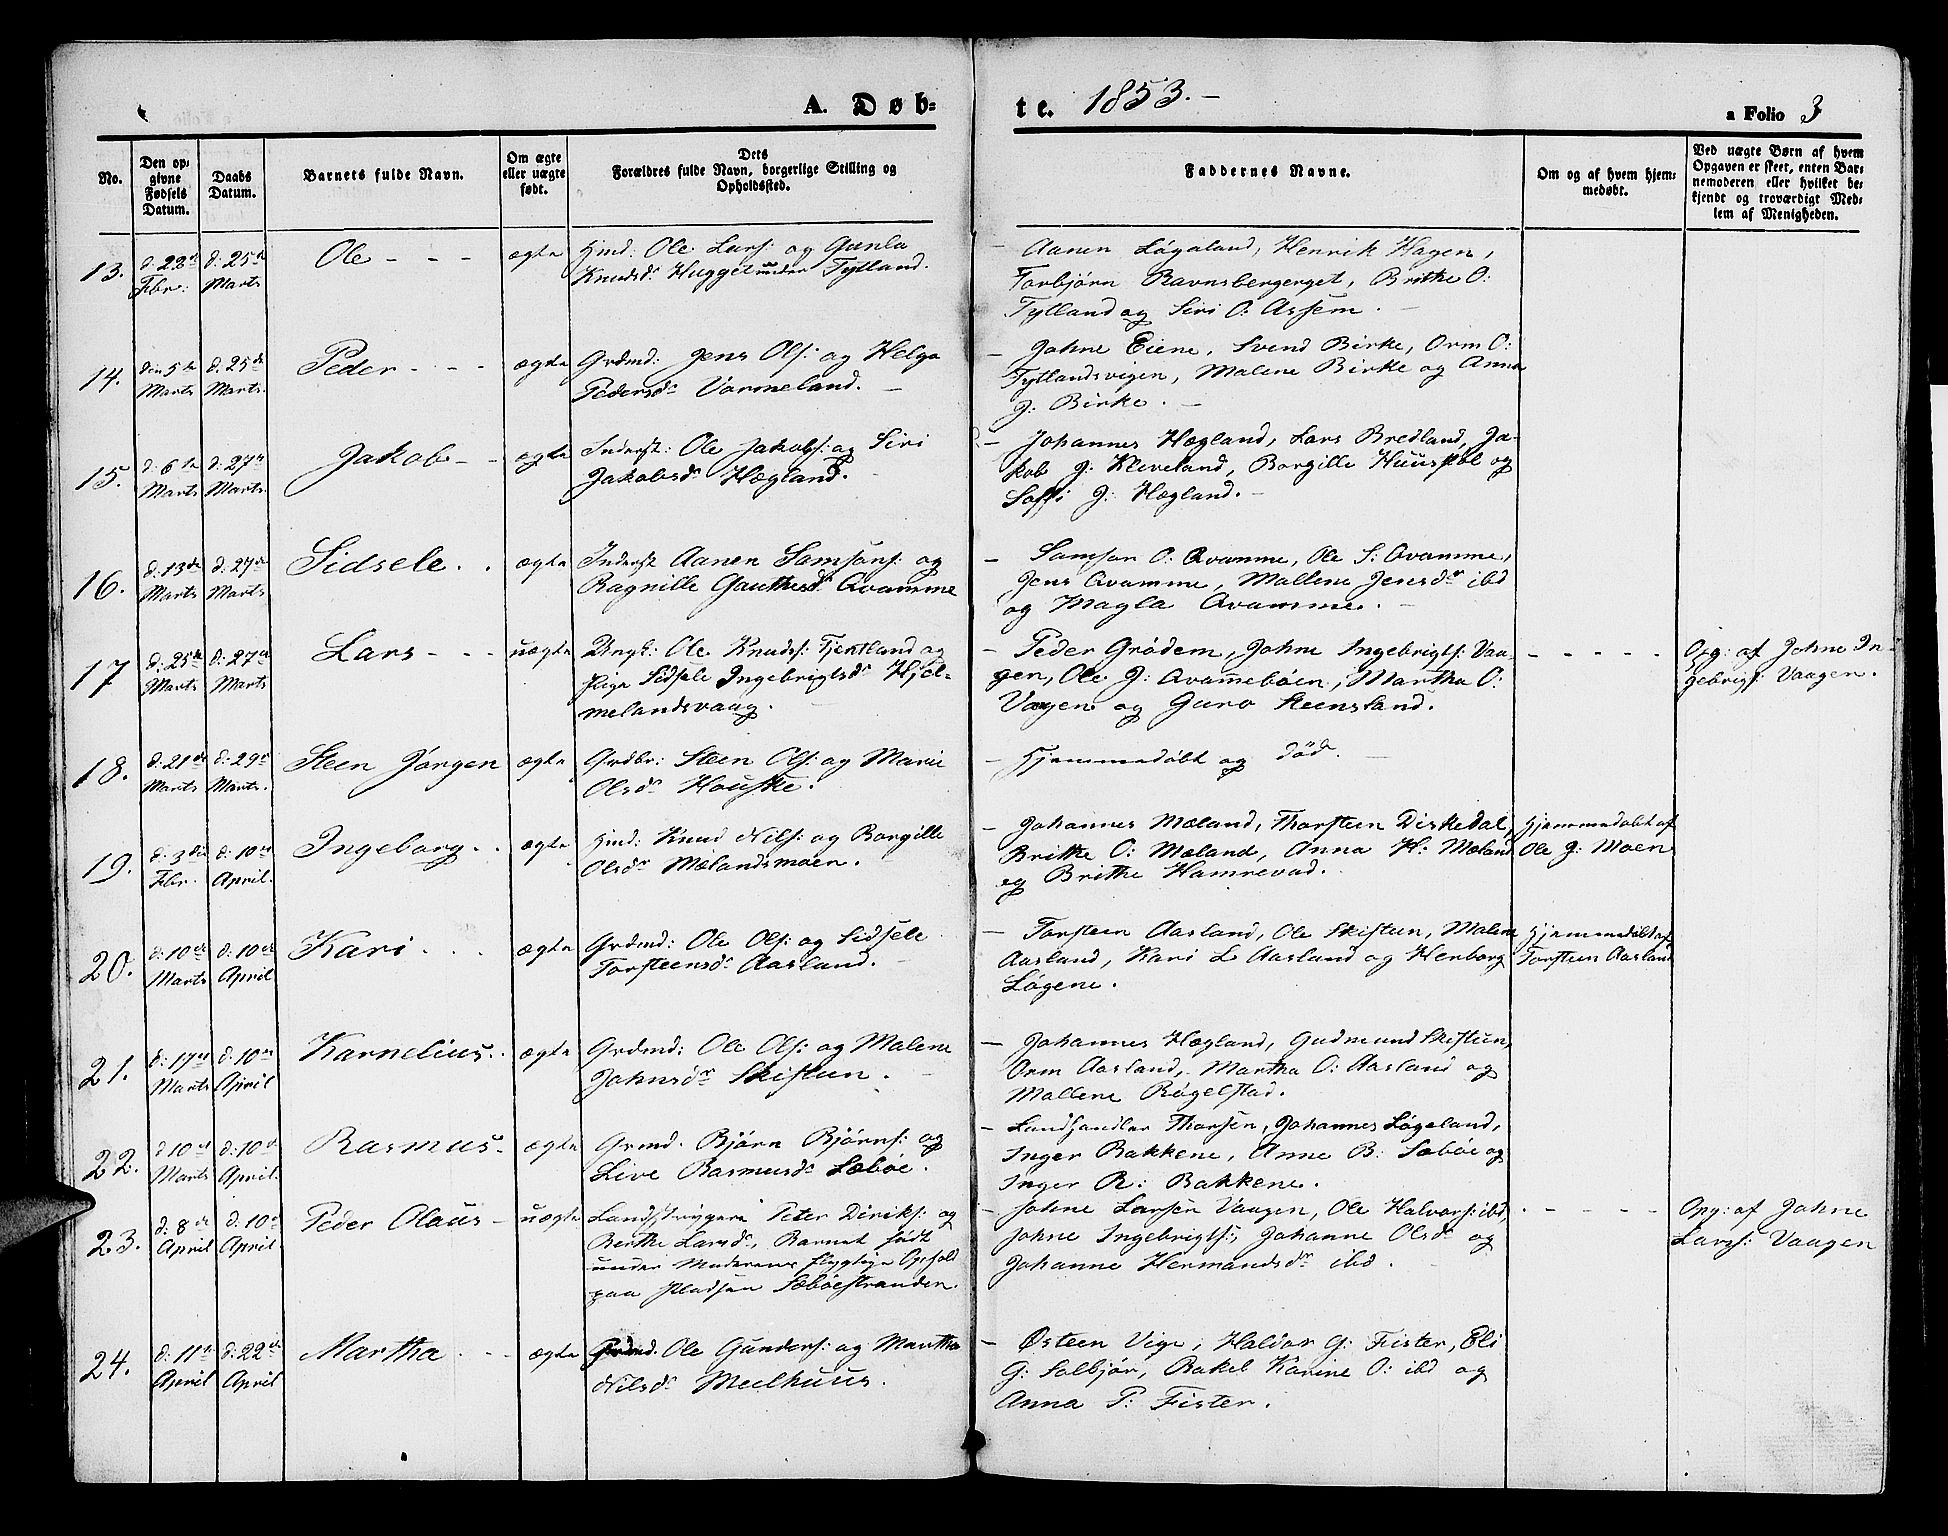 A. Døb=
te. 1853.-
a Folio 3
No.
Den op=
givne
Fødsels
Datum.
Daabs
Datum.
Barnets fulde Navn.
Om ægte
eller uægte
født.
Dets
Forældres fulde Navn, borgerlige Stilling og
Opholdssted.
Faddernes Navne.
Om og af hvem hjem=
medøbt.
Ved uægte Børn af hvem
Opgaven er skeet, enten Bar=
nemoderen eller hvilket be=
kjendt og troværdigt Med=
lem af Menigheden.
13.
d: 22de
Fbr:
d: 25de
Marts
Ole - - -
ægte
Hmd: Ole Lars: og Gunla
Knudsdr Hugget under Tytland.
- Aanen Løgaland, Henrik Hagen,
Torbjørn Ravnsbergerget, Brithe O:
Tytland og Siri O: Assem. -
14.
den 5te
Marts
d: 25de
Marts.
Peder - - -
ægte
Grdmd: Jens Ols: og Helga
Pedersdr Vormeland. -
- Johne Eiene, Svend Birke, Orm O:
Tytlandsvigen, Malene Birke og Anna
J: Birke. -
15.
d: 6te
Marts
d: 27de
Marts.
Jakob - -
ægte
Inderst: Ole Jakobs: og Siri
Jakobsdr Hægland. -
- Johannes Hægland, Lars Bredland, Ja-
kob J: Kleveland, Borgille Huusstøl og
Soffi J: Hægland. -
16.
d: 13de
Marts
d: 27de
Marts
Sidsele . .
ægte
Inderst Aanen Samsons: og
Ragnille Gauthesdr Qvamme
- Samson O: Qvamme, Ole S: Qvamme,
Jens Qvamme, Mallene Jensdr ibd
og Magla Qvamme. -
17
d: 25de
Marts
d: 27de
Marts
Lars - - -
uægte
Ungk: Ole Knuds: Fjentland og
Pige Sidsele Ingebrigtsdr Hjel-
melandsvaag. -
- Peder Grødem, Johne Ingebrigts: Vaa-
gen, Ole J: Qvamebøen, Martha O:
Vaagen og Guro Steensland.
- - - - -
Opg: af Johne In-
gebrigts: Vaagen.
18.
d: 21de
Marts
d: 29de
Marts.
Steen Jørgen
ægte
Grdbr: Steen Ols: og Marie
Olsdr Houske.
- Hjemmedøbt og død. -
19.
d: 3die
Fbr.
d: 10de
April.
Ingeborg. .
ægte
Hmd: Knud Nils: og Borgille
Olsdr Mælandsmoen.
- Johannes Mæland, Thorsteen Diskedal,
Brithe O: Mæland, Anna H: Mæland
og Brithe Hamrevad.
Hjemmedøbt af
Ole J: Moen
20.
d: 10de
Marts
d: 10de
April
Kari . . .
ægte
Grdmd: Ole Ols: og Sidsele
Torsteensdr Aasland. -
- Torsteen Aasland, Ole Skiftun, Malene
Aasland, Kari L Aasland og Herborg
Løgene.
Hjemmedøbt af
Torsteen Aasland
21.
d: 17de
Marts
d: 10de
April
Karnelius. .
ægte
Grdmd: Ole Ols: og Malene
Johnsdr Skiftun. -
- Johannes Hægland, Gudmund Skiftun,
Orm Aasland, Martha O: Aasland og
Mallene Røgelstad.
22.
d 10de
Marts
d: 10de
April.
Rasmus.
ægte
Grmd. Bjørn Bjørns: og
Live Rasmusdr Sæbøe.
- Landhandler Thorsen, Johannes Løgeland,
Inger Bakkene, Anne B: Sæbøe og
Inger R: Bakkene.
23.
d: 8de
April
d: 10de
April.
Peder Olaus -
uægte
Landstrygere Peter Diriks: og
Berthe Larsdr, Barnet født
under Moderens flygtige Ophold
paa Pladsen Sæbøestranden.
- Johne Larsen Vaagen, Ole Halvors: ibd,
Johne Ingebrigts:, Johanne Olsdr og
Johanne Hermandsdr ibd. -
- - - - -
Opg: af Johne
Larss: Vaagen
24.
d: 11te
April
d: 22de
April
Martha . - -
ægte
Grdmd. Ole Gunders: og Martha
Nilsdr Meelhuus.
- Østeen Vige, Haldor G: Fister, Eli
G: Solbjør, Rakel Karine O: ibd og
Anna P: Fister.